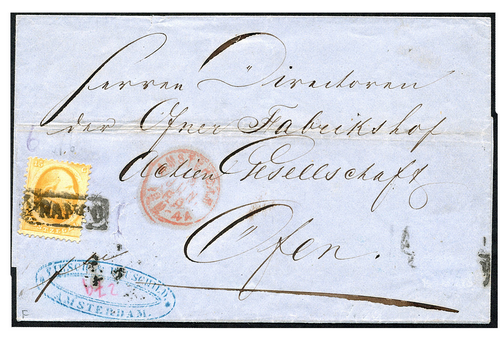 Herren Directoren
der Ofner Fabrikshof
Actien Gesellschaft
Ofen.
FRANCO
AMSTERDAM.
F